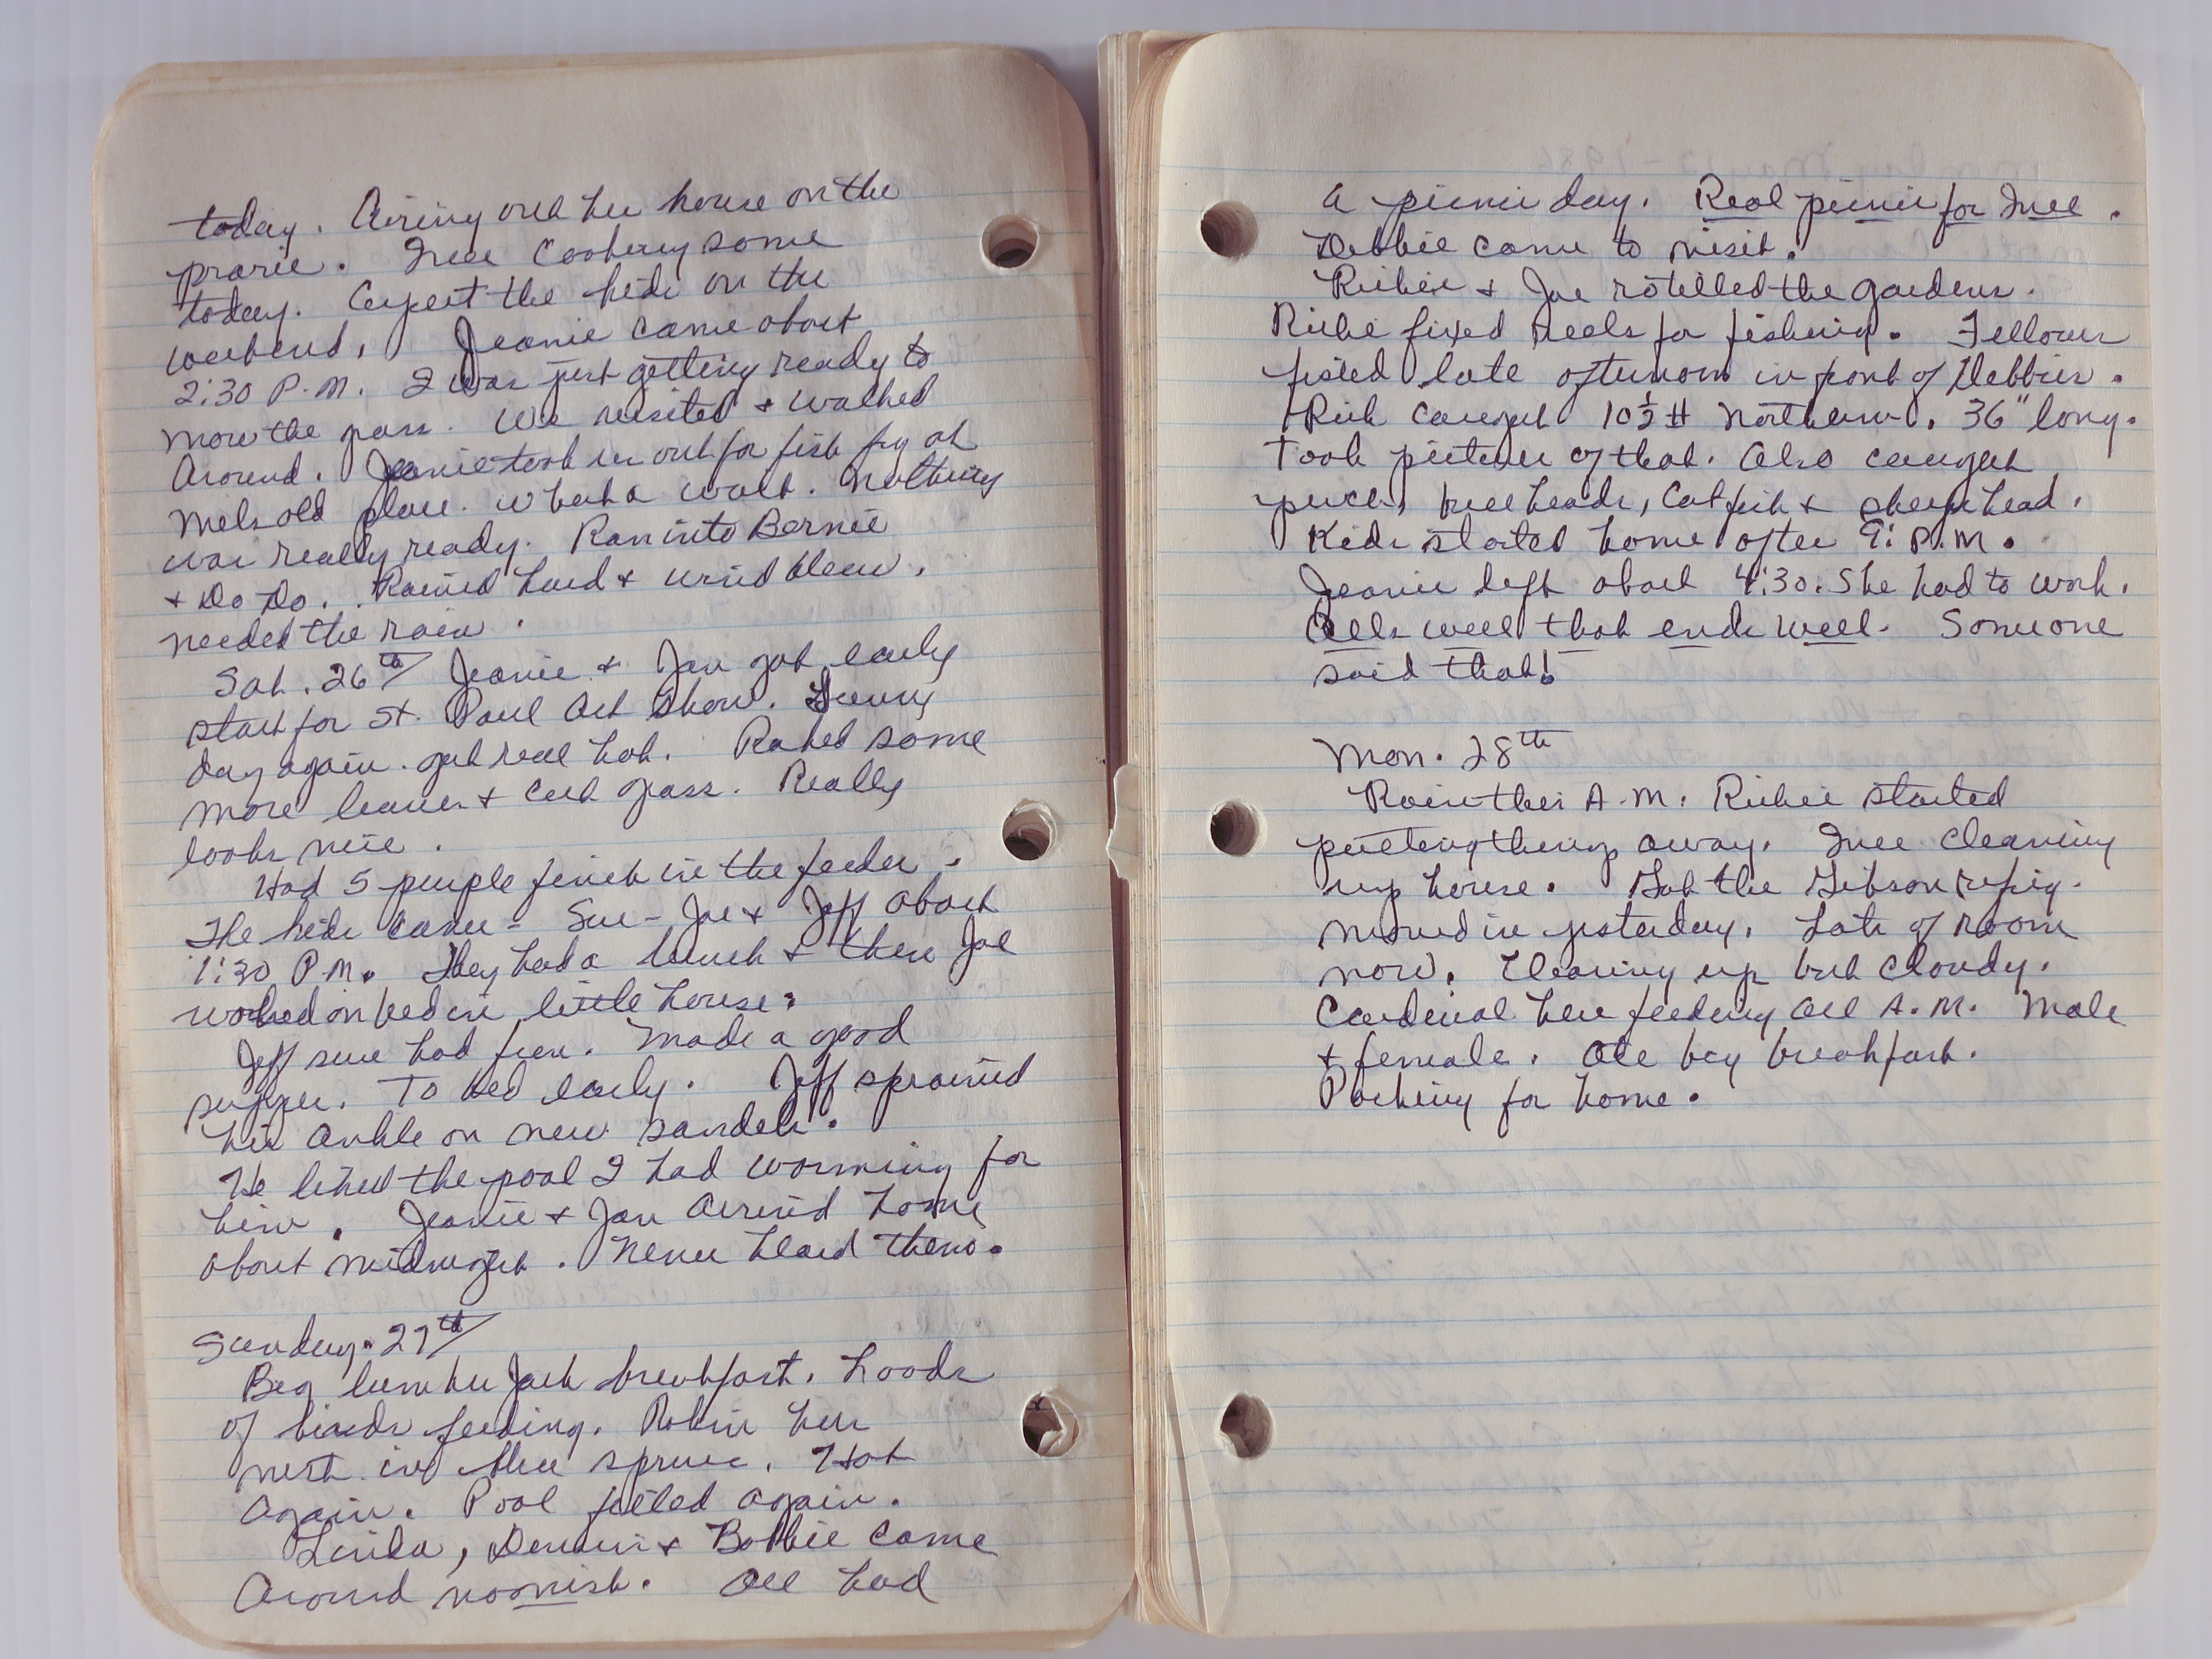 today. Airing out her house on the
prarie. Inee Cooking some
today. Expect the kids on the
weekend. Jeanie came about
2:30 P.M. I was just getting ready to
mow the grass. We visited & walked
Around. Jeanie took us out for fish fry at
Mels old place. What a wait. Nothing
was really ready. Ran into Bernie
& Do Do. Rained hard & wind blew.
needed the rain.
Sat. 26th Jeanie & Jan got early
start for St. Paul Art Show. Sunny
day again. got real hot. Raked some
more leaves & cut grass. Really
looks nice.
Had 5 purple finch in the feeder.
The kids came - Sue - Joe & Jeff about
1:30 P.M. They had a lunch & then Joe
worked on bed in little house.
Jeff sure had fun. Made a good
supper. To bed early. Jeff sprained
his ankle on new sandels.
He liked the pool I had warming for
him. Jeanie & Jan arrived home
about midnight. Never heard them.
Sunday. 27th
Big lumber Jack breakfast. Loads
of birds feeding. Robin her
nest in blue spruce. Hot
Again. Pool filled again.
Linda, Dennis & Bobbie came
Around noonish. All had
a picnic day. Real picnic for Inee.
Debbie came to visit.
Richie & Joe rotilled the gardens.
Richie fixed reels for fishing. Fellows
fished late afternoon in front of Debbies.
Rich caught 10½ # Northern. 36" long.
Took picture of that. Also caught
perch, bullheads, Catfish & sheephead.
Kids started home after 9: P.M.
Jeanie left about 4:30. She had to work.
Alls well that ends well. Someone
said that!
Mon. 28th
Rain this A.M. Richie started
putting things away. Inee cleaning
up house. Got the Gibson refrig.
moved in yesterday. Lots of room
now. Clearing up but cloudy.
Cardinal here feeding all A.M. Male
& female. Ate big breakfast.
Packing for home.